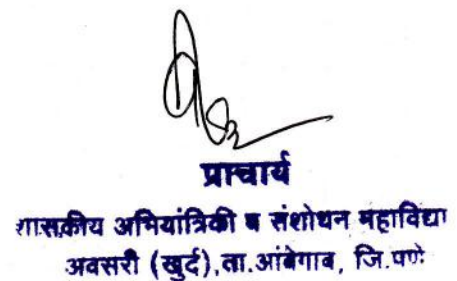 प्राचार्य
शासकीय अभियांत्रिकी व संशोधन महाविद्या
अवसरी (खुर्द),ता.आंबेगाव, जि.पुणे